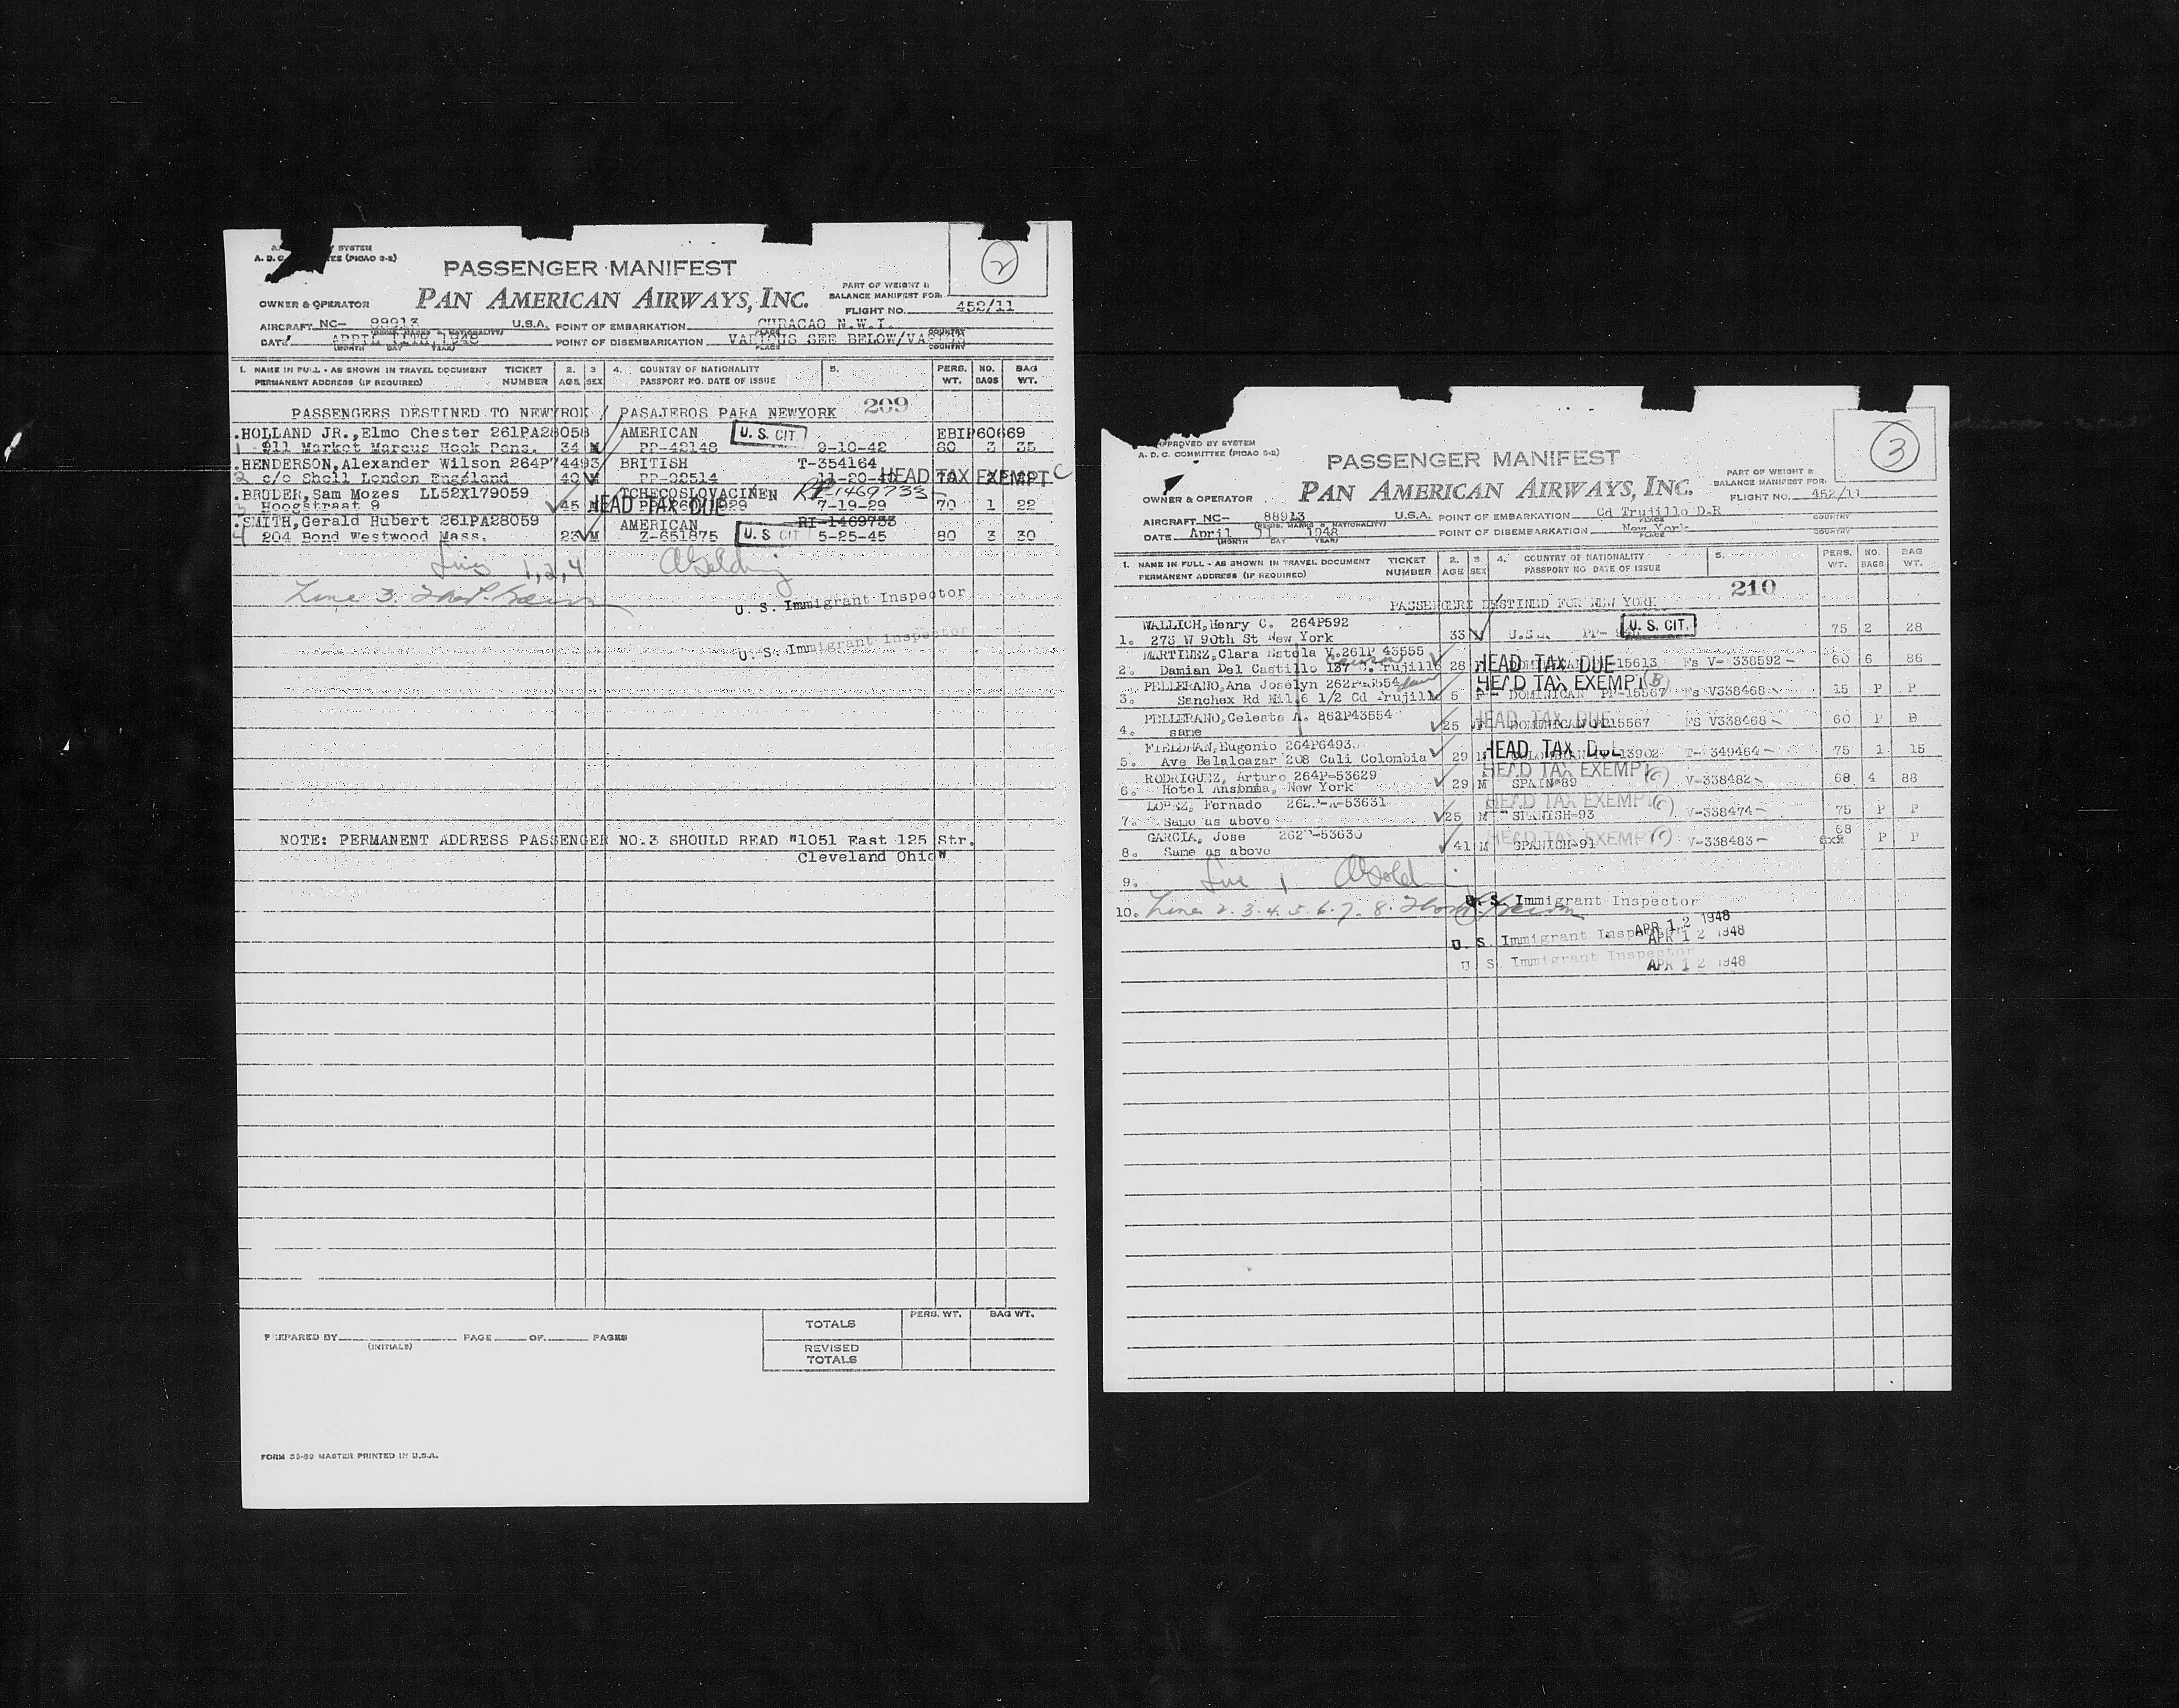 SYSTEM
A. D. C. (PICAO 3-2)
PASSENGER MANIFEST
2
OWNER & OPERATOR
PAN AMERICAN AIRWAYS, INC.
PART OF WEIGHT &
BALANCE MANIFEST FOR:
FLIGHT NO. 452/11
AIRCRAFT NC- 88913 U.S.A. POINT OF EMBARKATION CURACAO N.W.I.
DATE APRIL 11TH, 1948 POINT OF DISEMBARKATION VARIOUS SEE BELOW/
(MONTH DAY YEAR) PLACE COUNTRY
1. NAME IN FULL - AS SHOWN IN TRAVEL DOCUMENT TICKET 2. 3 4. COUNTRY OF NATIONALITY 5. PERS. NO. BAG
PERMANENT ADDRESS (IF REQUIRED) NUMBER AGE SEX PASSPORT NO. DATE OF ISSUE WT. BAGS WT.
PASSENGERS DESTINED TO NEWYROK / PASAJEROS PARA NEWYORK 209
.HOLLAND JR.,Elmo Chester 261PA28058 AMERICAN U. S. CIT EBIP60669
1 911 Market Marcus Hook Pens. 34 M PP-42148 9-10-42 80 3 35
.HENDERSON,Alexander Wilson 264P74493 BRITISH T-354164
2 c/o Shell London England 49 M HEAD TAX EXEMPT C
.BRUDER,Sam Mozes LL52X179059 TCHECOSLOVACINEN RP-1469733
3 Hoogstraat 9 45 M HEAD TAX DUE 7-19-29 70 1 22
.SMITH,Gerald Hubert 261PA28059 AMERICAN RI-1469733
4 204 Bond Westwood Mass. 23 M Z-651875 U. S CIT 5-25-45 80 3 30
Lines 1,2,4
Line 3.
U. S. Immigrant Inspector
U. S. Immigrant Inspector
NOTE: PERMANENT ADDRESS PASSENGER NO.3 SHOULD READ "1051 East 125 Str.
Cleveland Ohio"
PERS. WT. BAG WT.
TOTALS
PREPARED BY PAGE OF PAGES
(INITIALS)
REVISED
TOTALS
FORM MASTER PRINTED IN U.S.A.
APPROVED BY SYSTEM
A. D. C. COMMITTEE (PICAO 3-2)
PASSENGER MANIFEST
3
OWNER & OPERATOR
PAN AMERICAN AIRWAYS, INC.
PART OF WEIGHT &
BALANCE MANIFEST FOR:
FLIGHT NO. 452/11
AIRCRAFT NC- 88913 U.S.A. POINT OF EMBARKATION Cd Trujillo D.R
(REGIS. MARKS & NATIONALITY) PLACE COUNTRY
DATE April 11 1948 POINT OF DISEMBARKATION New York
(MONTH DAY YEAR) PLACE COUNTRY
1. NAME IN FULL - AS SHOWN IN TRAVEL DOCUMENT TICKET 2. 3. 4. COUNTRY OF NATIONALITY 5. PERS. NO. BAG
PERMANENT ADDRESS (IF REQUIRED) NUMBER AGE SEX PASSPORT NO. DATE OF ISSUE WT. BAGS WT.
210
PASSENGERS DESTINED FOR NEW YORK
WALLICH,Henry C. 264P592
1. 273 W 90th St New York 33 M U.S.A. PP- U. S. CIT. 75 2 28
MARTINEZ,Clara Estola V.261P 43555
2. Damian Del Castillo 137 C. Trujillo 28 F HEAD TAX DUE 15613 Fs V- 338592 60 6 86
PELLERANO,Ana Joselyn 262P43554 HEAD TAX EXEMPT (B)
3. Sanchex Rd Hil.6 1/2 Cd Trujillo 5 F DOMINICAN PP-15567 Fs V338468 15 P P
PELLERANO,Celesta A. 262P43554
4. same 25 F HEAD TAX DUE DOMINICAN 15567 FS V338468 60 P P
FIELDMAN,Eugenio 264P6493
5. Ave Belalcazar 208 Cali Colombia 29 M HEAD TAX DUE 13902 T- 349464 75 1 15
RODRIGUEZ, Arturo 264P-53629 HEAD TAX EXEMPT (C)
6. Hotel Ansonia, New York 29 M SPAIN-89 V-338482 68 4 88
LOPEZ, Fernado 262P-A-53631 HEAD TAX EXEMPT (C)
7. Same as above 25 M SPANISH-93 V-338474 75 P P
GARCIA, Jose 262P-53630 HEAD TAX EXEMPT (C) 68
8. Same as above 41 M SPANISH-91 V-338483 P P
9. Line 1
10. Lines 2. 3. 4. 5. 6. 7. 8. U. S. Immigrant Inspector
APR 12 1948
U. S. Immigrant Inspector APR 12 1948
U. S. Immigrant Inspector APR 12 1948